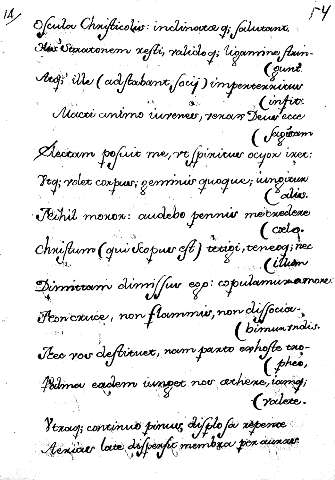 14 54
Oscula Christicolis: inclinatæq; salutant.
His Stratonem resti, validoq; ligamine strin-
(gunt.
Atq; ille (adstabant, socij) imperterritus
(infit.
Macti animo iuvenes, verax Deus ecce
(sagittam
Electam posuit me, vt spiritus ocyor iret:
Vtq; volet corpus; geminis quoque; iungitur
(alis.
Nihil moror: audebo pennis me tredere
(cœlo.
Christum (qui scopus est) tetigi, teneoq; nec
(illum
Dimittam dimissus ego: copulamur amore:
Non cruce, non flammis, non dissocia-
(bimur undis.
Nec vos destituet, nam parto ex hoste tro-
(pheo,
Palma eadem iunget nos æthere, iamq;
(valete.
Vtraq; continuo pinus displosa repente
Aerias late dispersit membra per auras